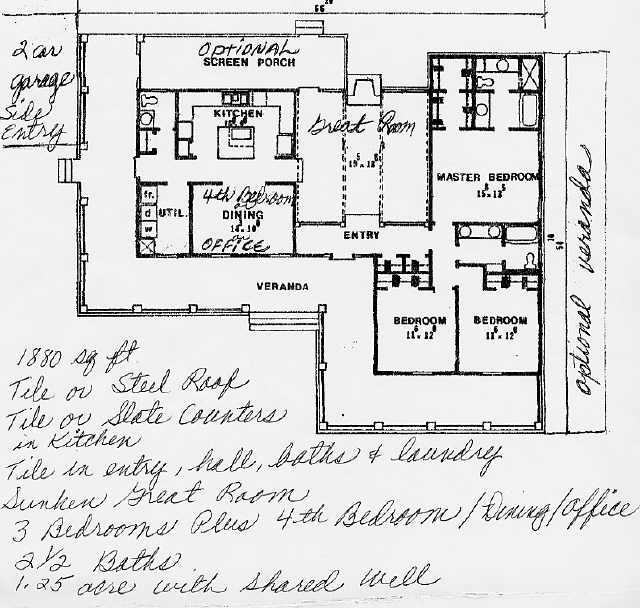 66
2 car
garage
Side
Entry
OPTIONAL
SCREEN PORCH
KITCHEN
Great Room
MASTER BEDROOM
4th Bedroom
DINING
or
OFFICE
fr.
d
w
UTIL.
ENTRY
VERANDA
BEDROOM
BEDROOM
optional veranda
1880 sq ft
Tile or Steel Roof
Tile or Slate Counters
in Kitchen
Tile in entry, hall, baths & laundry
Sunken Great Room
3 Bedrooms Plus 4th Bedroom/Dining/Office
2 1/2 Baths
1.25 acre with shared well